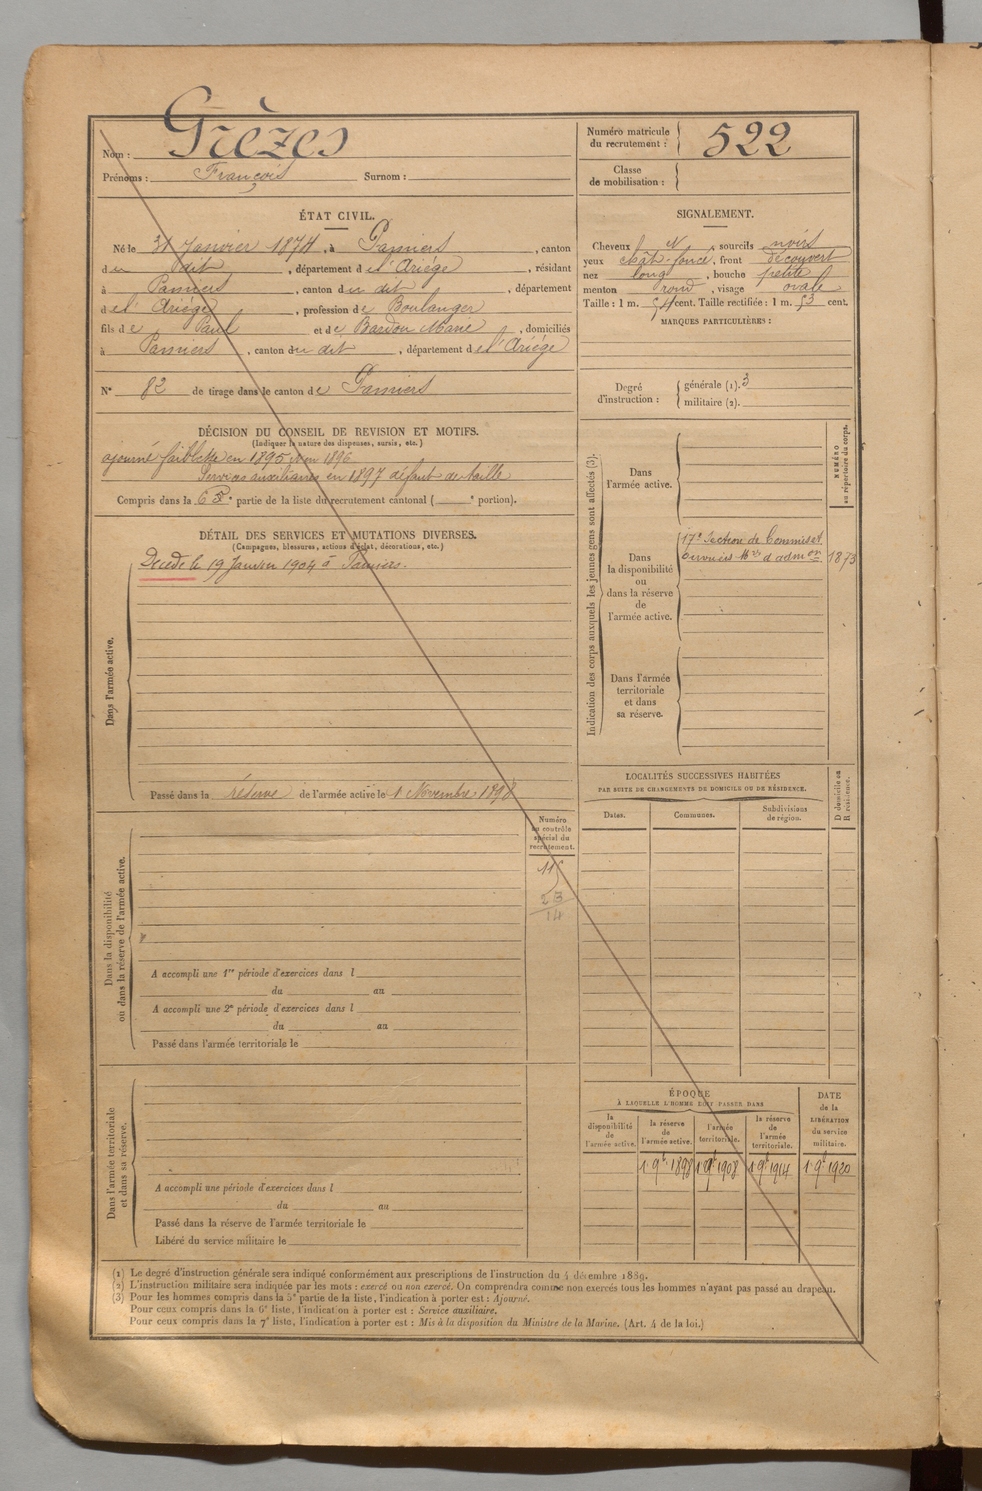 Nom : Grèzes
Prénoms : François Surnom :
Numéro matricule du recrutement : 522
Classe de mobilisation :
ÉTAT CIVIL.
Né le 31 Janvier 1874, à Pamiers, canton
du dit, département de l'Ariége, résidant
à Pamiers, canton du dit, département
de l'Ariége, profession de Boulanger
fils de Paul et de Bardon Marie, domiciliés
à Pamiers, canton du dit, département de l'Ariége
N° 82 de tirage dans le canton de Pamiers
SIGNALEMENT.
Cheveux N, sourcils noirs
yeux chât-foncé, front découvert
nez long, bouche petite
menton rond, visage ovale
Taille : 1 m. 54 cent. Taille rectifiée : 1 m. 53 cent.
MARQUES PARTICULIÈRES :
Degré d'instruction : générale (1). 3
militaire (2).
DÉCISION DU CONSEIL DE REVISION ET MOTIFS.
(Indiquer la nature des dispenses, sursis, etc.)
ajourné faiblesse en 1895 et en 1896
Services auxiliaires en 1897 défaut de taille
Compris dans la 6e partie de la liste du recrutement cantonal ( e portion).
DÉTAIL DES SERVICES ET MUTATIONS DIVERSES.
(Campagnes, blessures, actions d'éclat, décorations, etc.)
Dans l'armée active.
Décédé le 19 Janvier 1904 à Pamiers.
Passé dans la réserve de l'armée active le 1 Novembre 1898
Indication des corps auxquels les jeunes gens sont affectés (3).
NUMÉRO au répertoire du corps.
Dans l'armée active.
Dans la disponibilité ou dans la réserve de l'armée active.
17e Section de Commis et
Ouvriers Mres d'admon 1873
Dans l'armée territoriale et dans sa réserve.
LOCALITÉS SUCCESSIVES HABITÉES
PAR SUITE DE CHANGEMENTS DE DOMICILE OU DE RÉSIDENCE.
D domicile ou R résidence.
Dates. Communes. Subdivisions de région.
Dans la disponibilité ou dans la réserve de l'armée active.
Numéro au contrôle spécial du recrutement.
23
14
A accompli une 1re période d'exercices dans l
du au
A accompli une 2e période d'exercices dans l
du au
Passé dans l'armée territoriale le
Dans l'armée territoriale et dans sa réserve.
A accompli une période d'exercices dans l
du au
Passé dans la réserve de l'armée territoriale le
Libéré du service militaire le
ÉPOQUE
À LAQUELLE L'HOMME DOIT PASSER DANS
la disponibilité de l'armée active. la réserve de l'armée active. l'armée territoriale. la réserve de l'armée territoriale.
DATE de la LIBÉRATION du service militaire.
1 9b 1898 1 9b 1908 1 9b 1914 1 9b 1920
(1) Le degré d'instruction générale sera indiqué conformément aux prescriptions de l'instruction du 4 décembre 1889.
(2) L'instruction militaire sera indiquée par les mots : exercé ou non exercé. On comprendra comme non exercés tous les hommes n'ayant pas passé au drapeau.
(3) Pour les hommes compris dans la 5e partie de la liste, l'indication à porter est : Ajourné.
Pour ceux compris dans la 6e liste, l'indication à porter est : Service auxiliaire.
Pour ceux compris dans la 7e liste, l'indication à porter est : Mis à la disposition du Ministre de la Marine. (Art. 4 de la loi.)